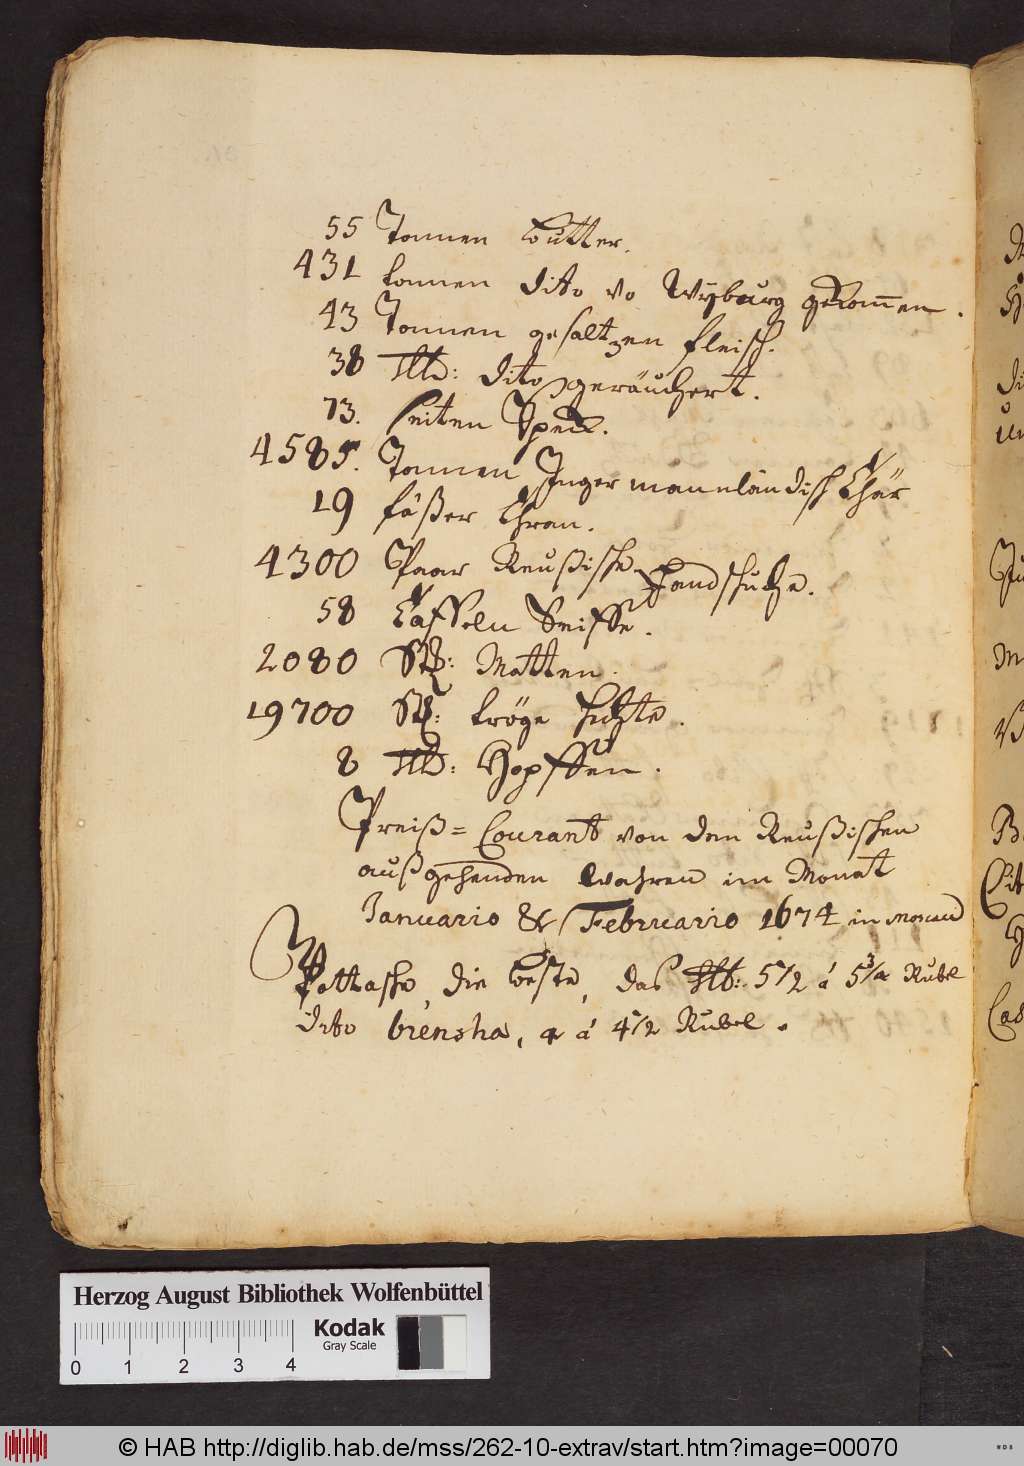 55 Tonnen butter.
431 tonnen dito vo Wyburg gekom̅en.
43 Tonnen gesaltzen fleisch.
38 Ꞓ℔: dito geräuchert.
73. seiten Speck.
4585. Tonnen Ingermannländisch Thär
19 fäßer Thran.
4300 Paar Reußische Handschuhe.
58 Taffeln Seiffe.
2080 Stk: Matten.
19700 Stk: kröge
8 Hopffen.
Preiß= Courant von den Reußischen
außgehenden wahren im Monat
Januario & Februario 1674 in Moscau
Pottasche, die beste, das 5 1/2 á 5 3/4 Rubel
dito brensha, 4 á 4 1/2 Rubel.
Herzog August Bibliothek Wolfenbüttel
Kodak
Gray Scale
0 1 2 3 4
© HAB http://diglib.hab.de/mss/262-10-extrav/start.htm?image=00070